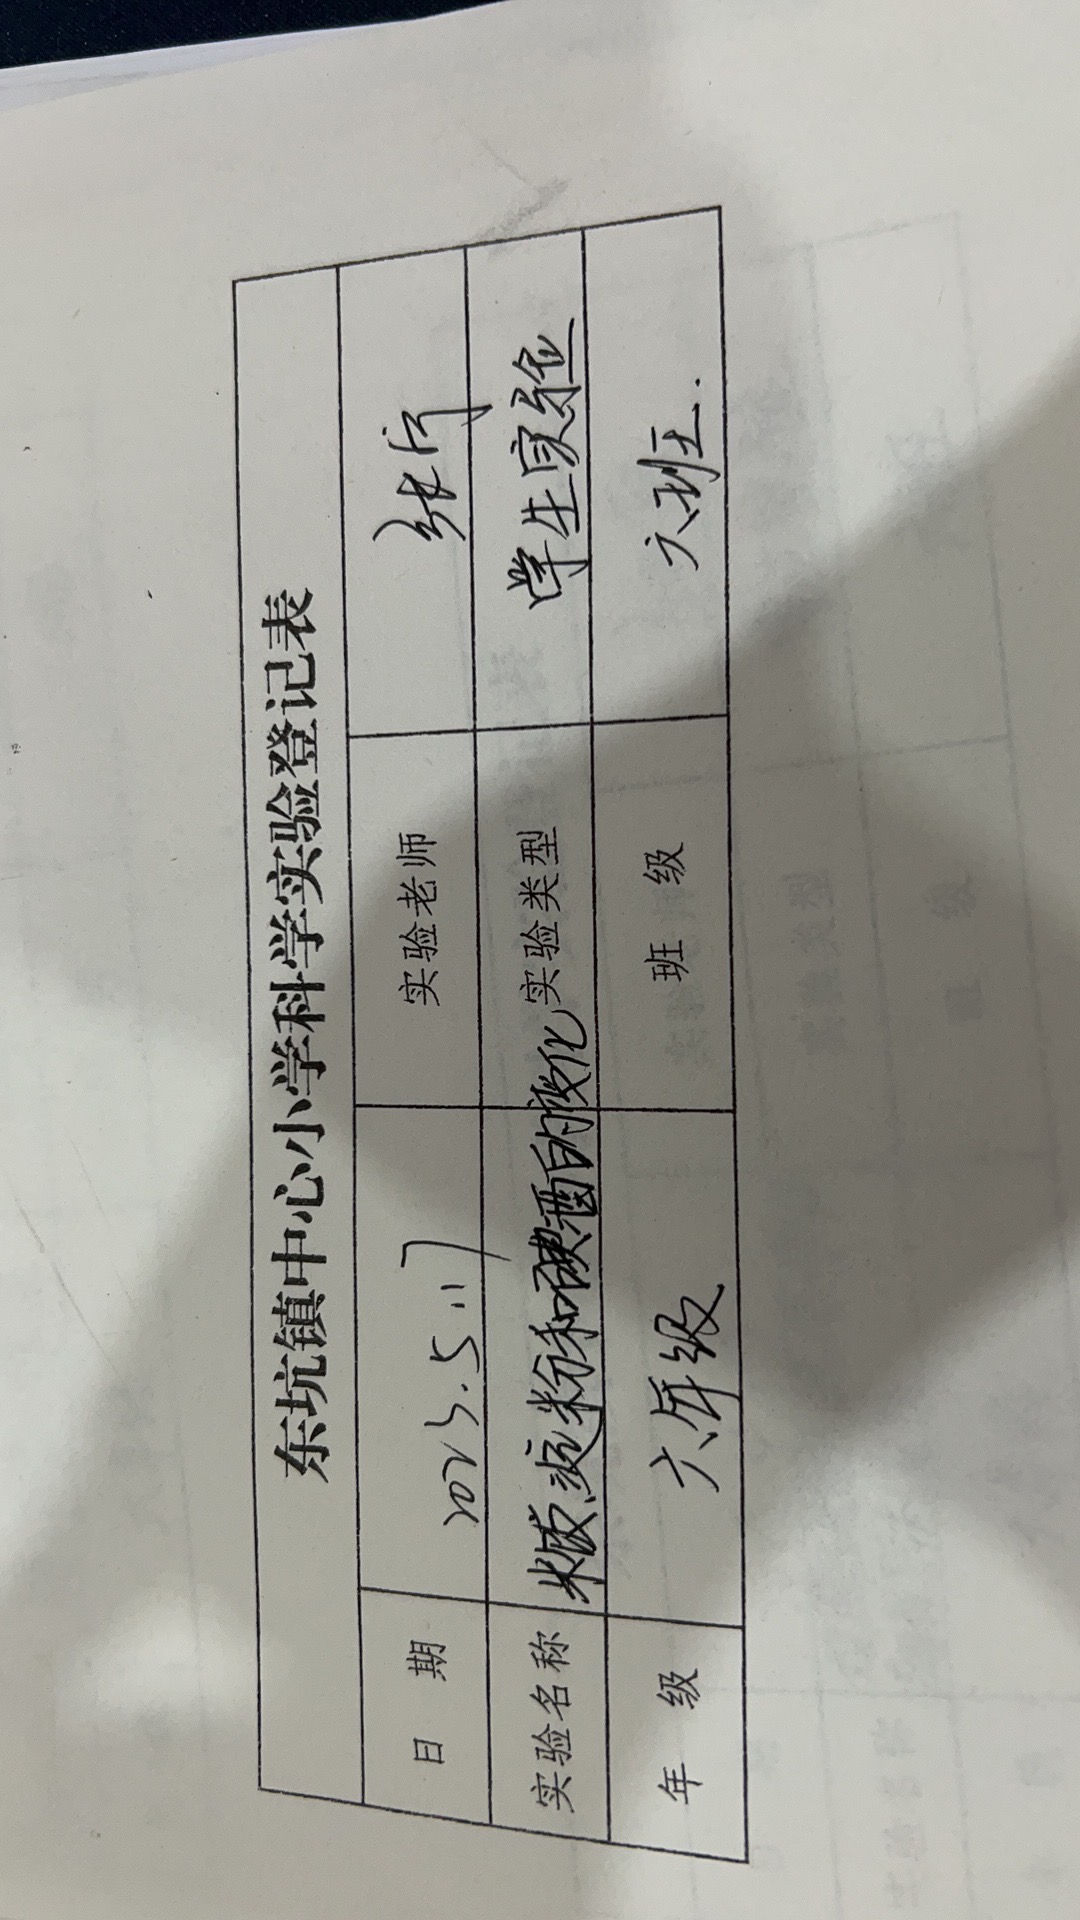 东坑镇中心小学科学实验登记表
日期 2023.5.17 实验老师
实验名称 淀粉和碘酒的变化 实验类型 学生实验
年级 六年级 班级 六班.